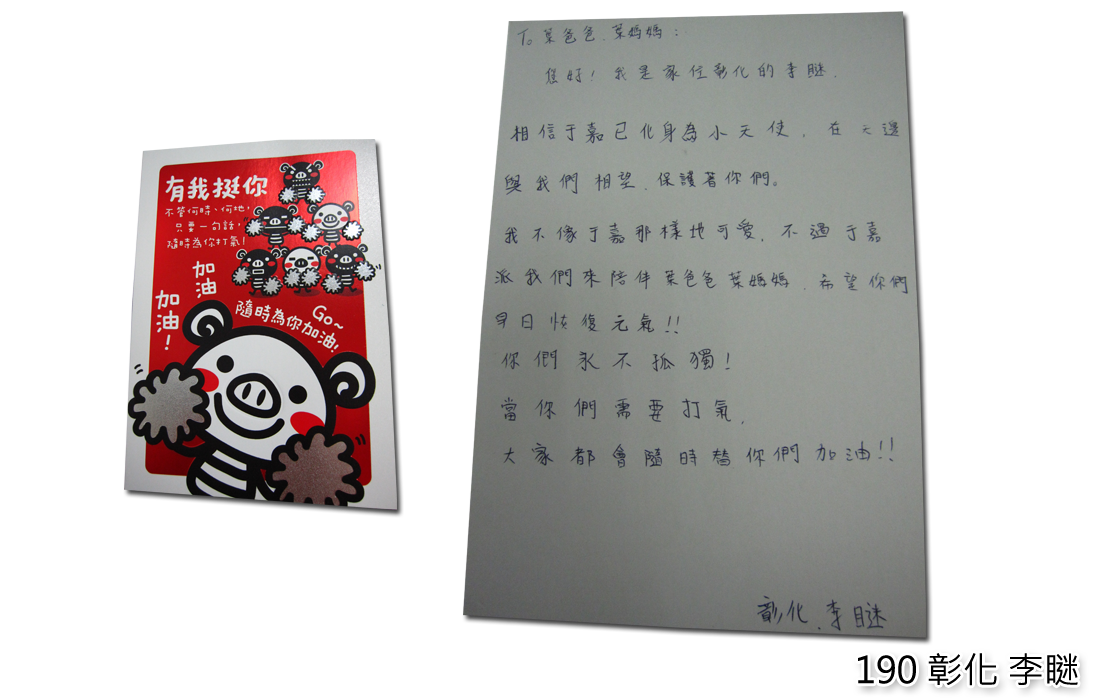 有我挺你
不管何時、何地，
只要一句話，
隨時為你打氣！
加油
加油！
Go~
隨時為你加油!
To 葉爸爸、葉媽媽：
您好！我是家住彰化的李瞇.
相信于嘉已化身為小天使，在天邊
與我們相望、保護著你們。
我不像于嘉那樣地可愛，不過于嘉
派我們來陪伴葉爸爸葉媽媽，希望你們
早日恢復元氣!!
你們永不孤獨！
當你們需要打氣，
大家都會隨時替你們加油!!
彰化、李瞇
190 彰化 李瞇